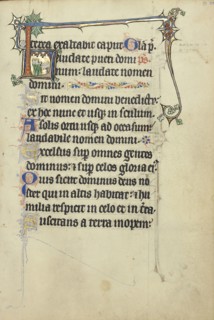 terea exaltabit caput Ola p
Laudate pueri domi
num: laudate nomen
domini.
Sit nomen domini benedictū
ex hoc nunc et usqꝫ in seculum.
A solis ortu usqꝫ ad occasum:
laudabile nomen domini.
Excelsus sup omnes gentes
dominus: ⁊ sup celos gloria ei
Quis sicut dominus deus no
ster qui in altis habitat: ⁊ hu
milia respicit in celo et in
Suscitans a terra inopem: